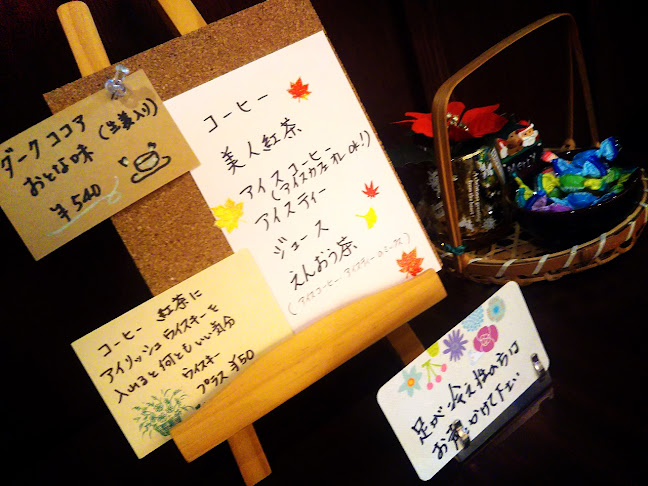 ダークココア
(生姜入り)
おとな味
¥540
コーヒー
美人紅茶
アイスコーヒー
(アイスカフェオレOK!)
アイスティー
ジュース
えんおう茶
(アイスコーヒー、アイスティーのミックス)
コーヒー 紅茶に
アイリッシュウイスキーを
入れると何ともいい気分
ウイスキー
プラス ¥50
足が冷え性の方は
お声かけて下さい